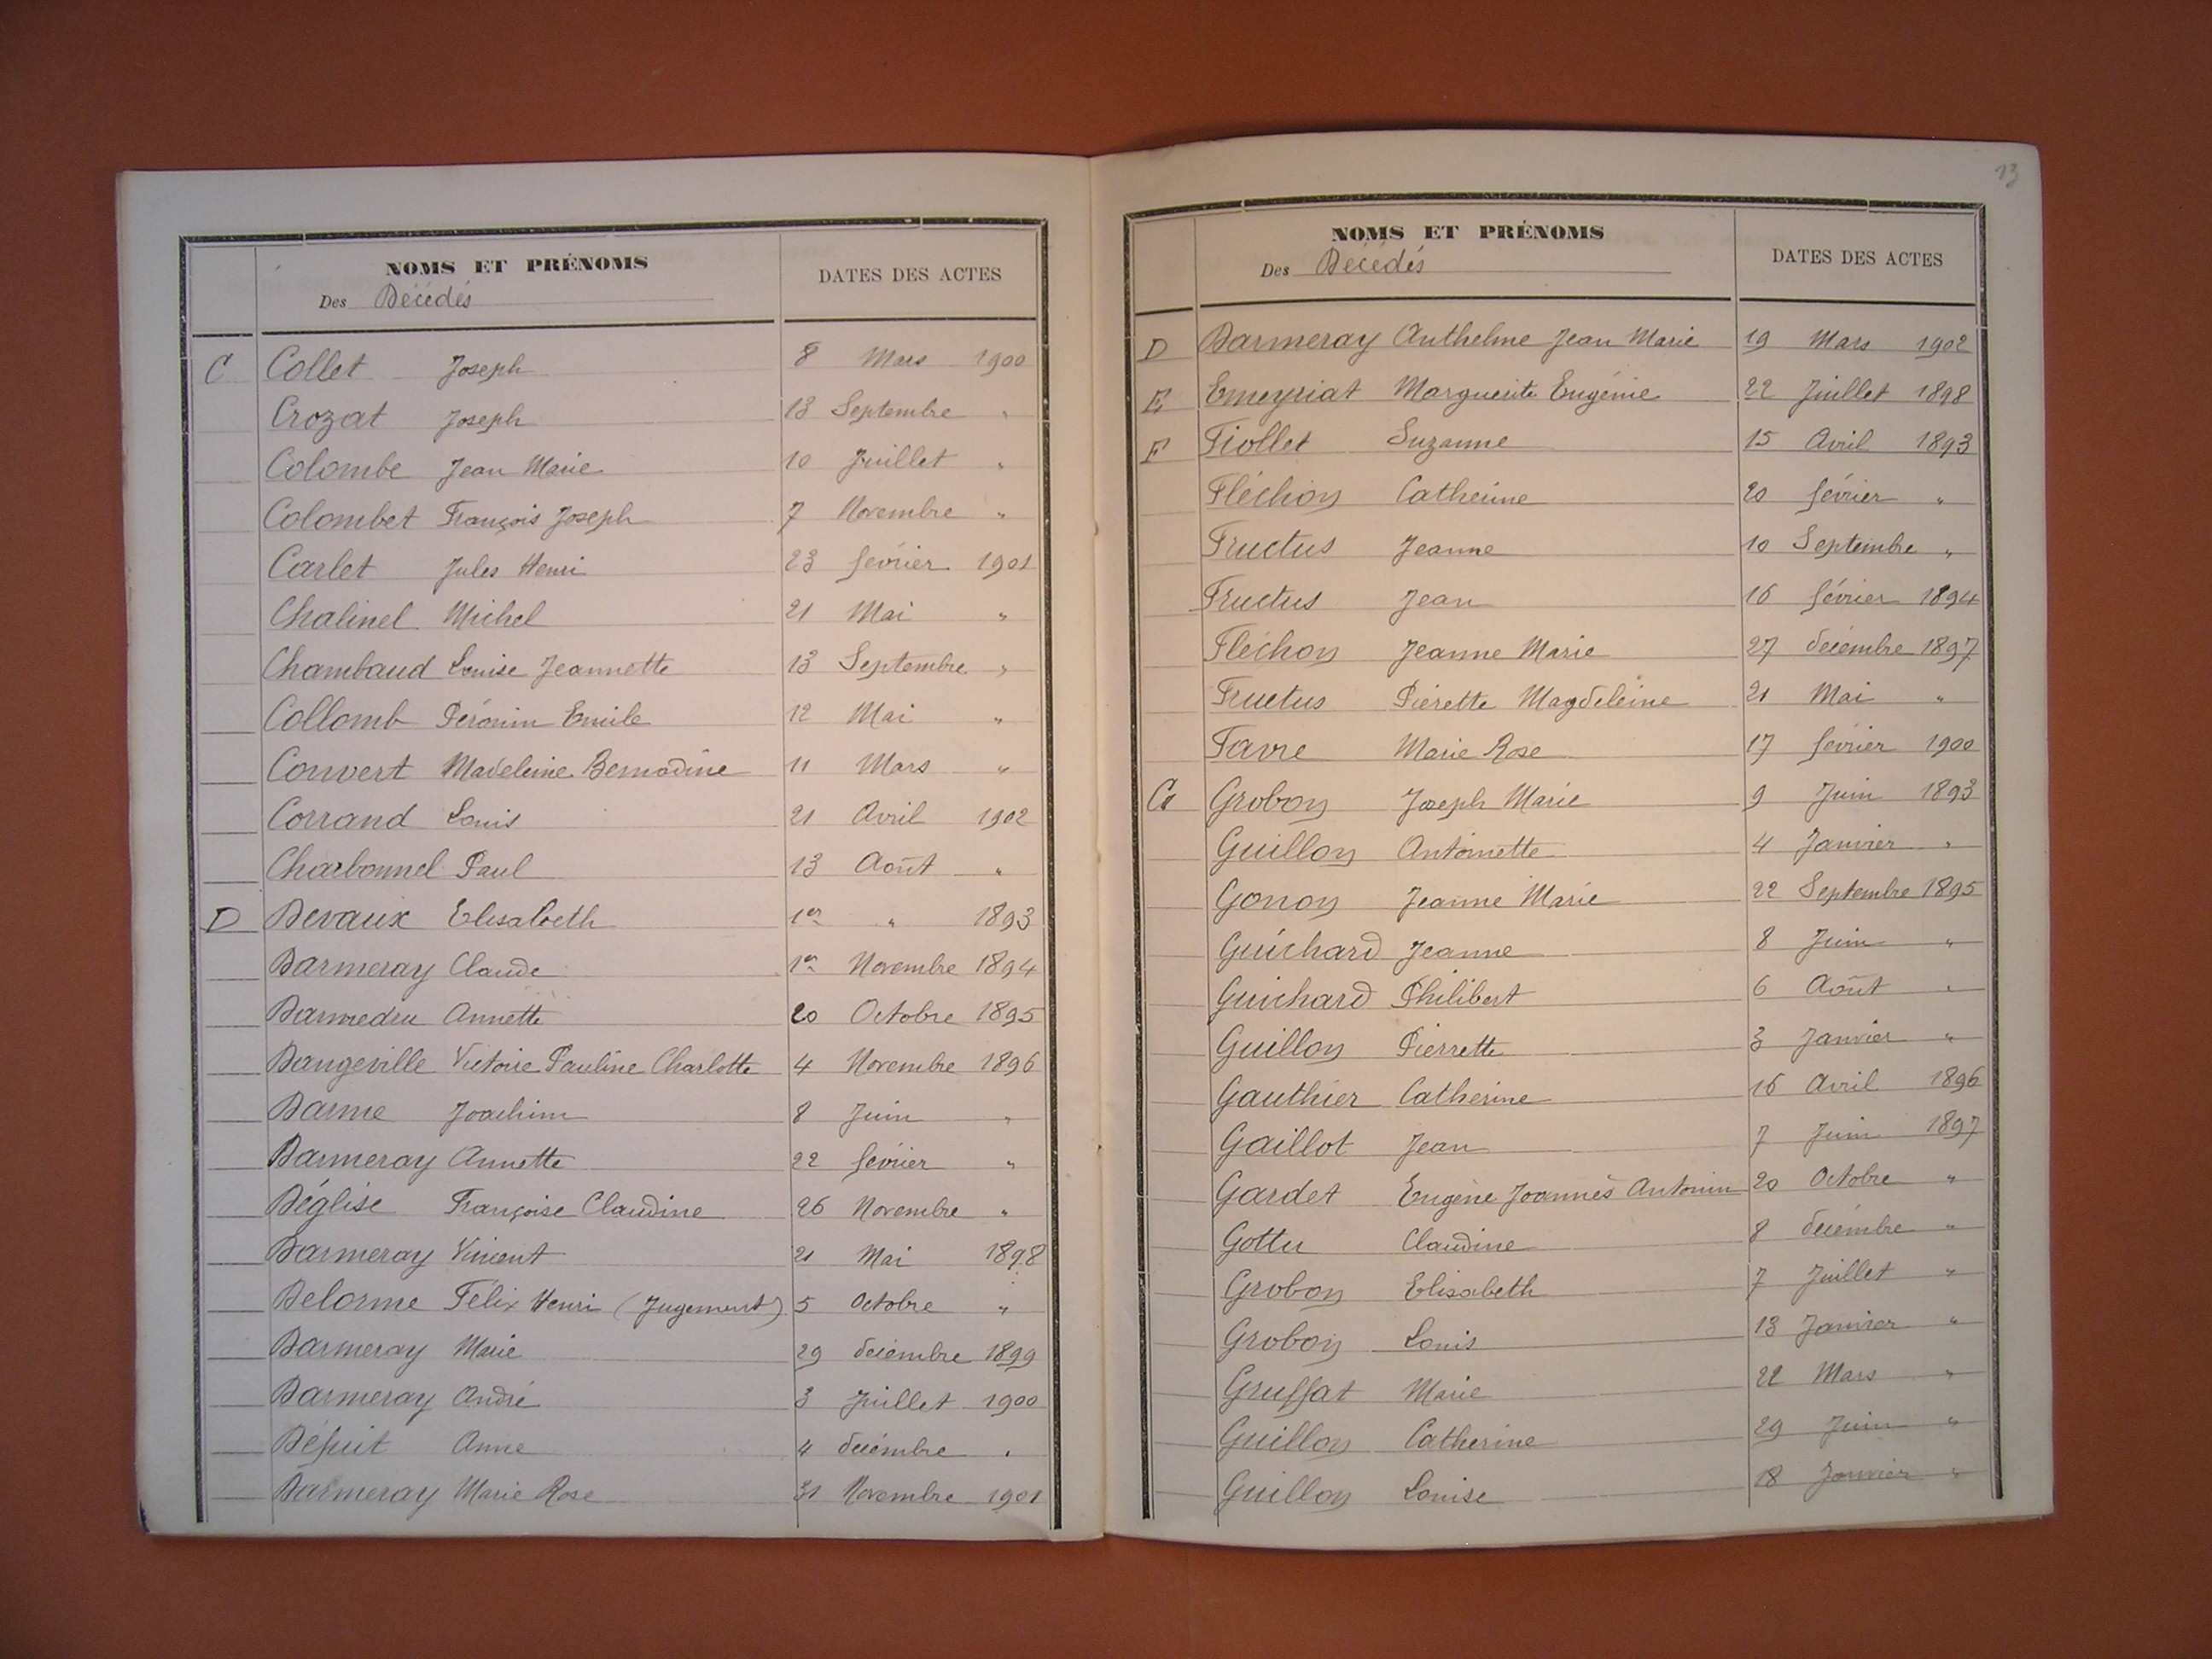 NOMS ET PRÉNOMS
Des Décédés
DATES DES ACTES
C Collet Joseph 8 Mars 1900
Crozat Joseph 13 Septembre "
Colombe Jean Marie 10 Juillet "
Colombet François Joseph 7 Novembre "
Carlet Jules Henri 23 février 1901
Chalinel Michel 21 Mai "
Chambaud Louise Jeannette 13 Septembre "
Collomb Péronin Emile 12 Mai "
Convert Madeleine Bernadine 11 Mars "
Corrand Louis 21 Avril 1902
Charbonnel Paul 13 Août "
D Devaux Elisabeth 1er " 1893
Darmeray Claude 1er Novembre 1894
Darmedru Annette 20 Octobre 1895
Dangeville Victoire Pauline Charlotte 4 Novembre 1896
Darme Joachim 8 Juin "
Darmeray Annette 22 février "
Déglise Françoise Claudine 26 Novembre "
Darmeray Vincent 21 Mai 1898
Delorme Félix Henri (Jugement) 5 Octobre "
Darmeray Marie 29 décembre 1899
Darmeray André 3 Juillet 1900
Anne 4 décembre "
Darmeray Marie Rose 31 Novembre 1901
13
NOMS ET PRÉNOMS
Des Décédés
DATES DES ACTES
D Darmeray Anthelme Jean Marie 19 Mars 1902
E Emeyriat Marguerite Eugénie 22 Juillet 1898
F Fiollet Suzanne 15 Avril 1893
Fléchon Catherine 20 février "
Fructus Jeanne 10 Septembre "
Fructus Jean 16 février 1894
Fléchon Jeanne Marie 27 décembre 1897
Fructus Piérette Magdeleine 21 Mai "
Favre Marie Rose 17 février 1900
G Grobon Joseph Marie 9 Juin 1893
Guillon Antoinette 4 Janvier "
Gonon Jeanne Marie 22 Septembre 1895
Guichard Jeanne 8 Juin "
Guichard Philibert 6 Août "
Guillon Pierrette 3 Janvier "
Gauthier Catherine 16 Avril 1896
Gaillot Jean 7 Juin 1897
Gardet Eugène Joannès Antonin 20 Octobre "
Gottu Claudine 8 décembre "
Grobon Elisabeth 7 Juillet "
Grobon Louis 13 Janvier "
Gruffat Marie 22 Mars "
Guillon Catherine 29 Juin "
Guillon Louise 18 Janvier "